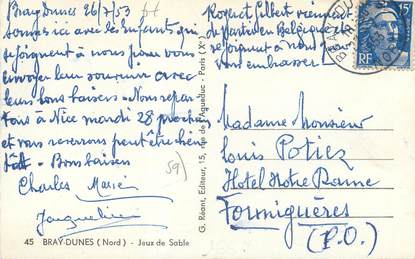 Bray Dunes 26/7/53
sommes ici avec les Enfants qui
rejoignent à nous pour vous
envoyer leur souvenir avec
leurs bons baisers - Nous repar
tons à Nice mardi 28 prochain
et vous reverrons peut être bien
tôt - Bons baisers
Charles Marie
Jacqueline
Roger et Gilbert
de partir en Belgique se
rejoignent à nous pour
vous embrasser!
15F
RF
Madame Monsieur
Louis Potiez
Hotel Notre Dame
Formiguères
(P.O.)
59
G. Réant, Editeur, 15, rue de l'Aqueduc - Paris (Xe)
45 BRAY-DUNES (Nord) - Jeux de Sable